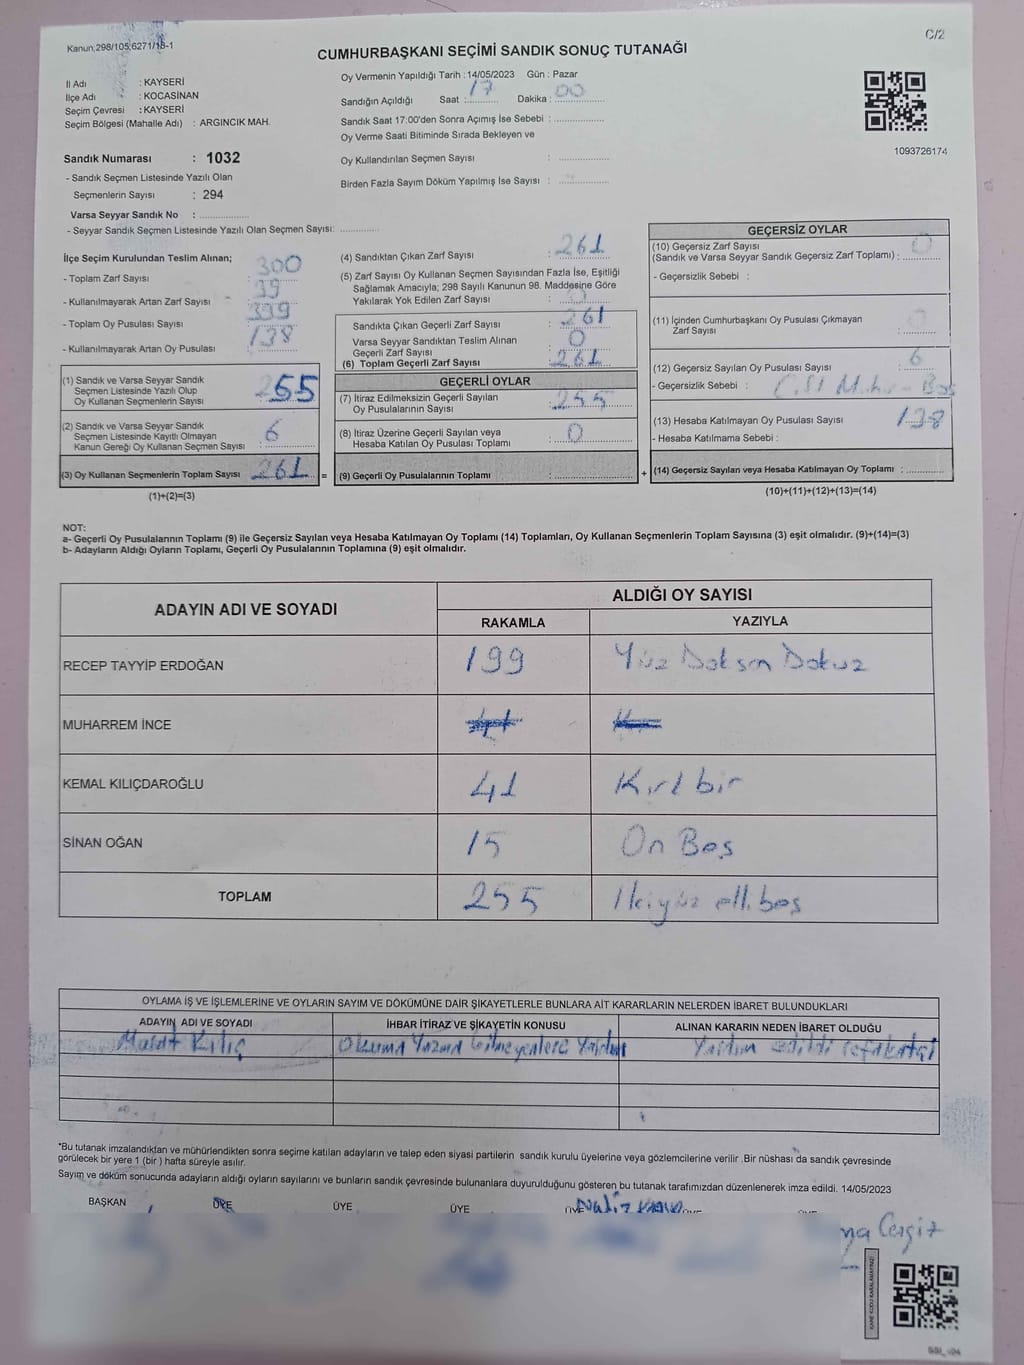 Kanun;298/105;6271/18-1
C/2
CUMHURBAŞKANI SEÇİMİ SANDIK SONUÇ TUTANAĞI
İl Adı : KAYSERİ
İlçe Adı : KOCASİNAN
Seçim Çevresi : KAYSERİ
Seçim Bölgesi (Mahalle Adı) : ARGINCIK MAH.
Sandık Numarası : 1032
- Sandık Seçmen Listesinde Yazılı Olan
Seçmenlerin Sayısı : 294
Varsa Seyyar Sandık No :
- Seyyar Sandık Seçmen Listesinde Yazılı Olan Seçmen Sayısı:
Oy Vermenin Yapıldığı Tarih : 14/05/2023 Gün : Pazar
Sandığın Açıldığı Saat : 17 Dakika : 00
Sandık Saat 17:00'den Sonra Açımış İse Sebebi :
Oy Verme Saati Bitiminde Sırada Bekleyen ve
Oy Kullandırılan Seçmen Sayısı :
Birden Fazla Sayım Döküm Yapılmış İse Sayısı :
1093726174
İlçe Seçim Kurulundan Teslim Alınan;
- Toplam Zarf Sayısı 300
- Kullanılmayarak Artan Zarf Sayısı 39
- Toplam Oy Pusulası Sayısı 399
- Kullanılmayarak Artan Oy Pusulası 138
(1) Sandık ve Varsa Seyyar Sandık
Seçmen Listesinde Yazılı Olup
Oy Kullanan Seçmenlerin Sayısı 255
(2) Sandık ve Varsa Seyyar Sandık
Seçmen Listesinde Kayıtlı Olmayan
Kanun Gereği Oy Kullanan Seçmen Sayısı 6
(3) Oy Kullanan Seçmenlerin Toplam Sayısı 261 =
(1)+(2)=(3)
(4) Sandıktan Çıkan Zarf Sayısı : 261
(5) Zarf Sayısı Oy Kullanan Seçmen Sayısından Fazla İse, Eşitliği
Sağlamak Amacıyla; 298 Sayılı Kanunun 98. Maddesine Göre
Yakılarak Yok Edilen Zarf Sayısı : 0
Sandıkta Çıkan Geçerli Zarf Sayısı : 261
Varsa Seyyar Sandıktan Teslim Alınan
Geçerli Zarf Sayısı 0
(6) Toplam Geçerli Zarf Sayısı 261
GEÇERLİ OYLAR
(7) İtiraz Edilmeksizin Geçerli Sayılan
Oy Pusulalarının Sayısı : 255
(8) İtiraz Üzerine Geçerli Sayılan veya
Hesaba Katılan Oy Pusulası Toplamı : 0
(9) Geçerli Oy Pusulalarının Toplamı : +
GEÇERSİZ OYLAR
(10) Geçersiz Zarf Sayısı
(Sandık ve Varsa Seyyar Sandık Geçersiz Zarf Toplamı) : 0
- Geçersizlik Sebebi :
(11) İçinden Cumhurbaşkanı Oy Pusulası Çıkmayan
Zarf Sayısı : 0
(12) Geçersiz Sayılan Oy Pusulası Sayısı : 6
- Geçersizlik Sebebi :
(13) Hesaba Katılmayan Oy Pusulası Sayısı : 138
- Hesaba Katılmama Sebebi :
(14) Geçersiz Sayılan veya Hesaba Katılmayan Oy Toplamı :
(10)+(11)+(12)+(13)=(14)
NOT:
a- Geçerli Oy Pusulalarının Toplamı (9) ile Geçersiz Sayılan veya Hesaba Katılmayan Oy Toplamı (14) Toplamları, Oy Kullanan Seçmenlerin Toplam Sayısına (3) eşit olmalıdır. (9)+(14)=(3)
b- Adayların Aldığı Oyların Toplamı, Geçerli Oy Pusulalarının Toplamına (9) eşit olmalıdır.
ADAYIN ADI VE SOYADI
ALDIĞI OY SAYISI
RAKAMLA YAZIYLA
RECEP TAYYİP ERDOĞAN 199 Yüz Doksan Dokuz
MUHARREM İNCE
KEMAL KILIÇDAROĞLU 41 Kırk bir
SİNAN OĞAN 15 On Beş
TOPLAM 255 İkiyüz elli beş
OYLAMA İŞ VE İŞLEMLERİNE VE OYLARIN SAYIM VE DÖKÜMÜNE DAİR ŞİKAYETLERLE BUNLARA AİT KARARLARIN NELERDEN İBARET BULUNDUKLARI
ADAYIN ADI VE SOYADI İHBAR İTİRAZ VE ŞİKAYETİN KONUSU ALINAN KARARIN NEDEN İBARET OLDUĞU
Murat Kılıç Okuma Yazma bilmeyenlere Yardım Yardım edildi refakatçi
*Bu tutanak imzalandıktan ve mühürlendikten sonra seçime katılan adayların ve talep eden siyasi partilerin sandık kurulu üyelerine veya gözlemcilerine verilir .Bir nüshası da sandık çevresinde
görülecek bir yere 1 (bir ) hafta süreyle asılır.
Sayım ve döküm sonucunda adayların aldığı oyların sayılarını ve bunların sandık çevresinde bulunanlara duyurulduğunu gösteren bu tutanak tarafımızdan düzenlenerek imza edildi. 14/05/2023
BAŞKAN ÜYE ÜYE ÜYE